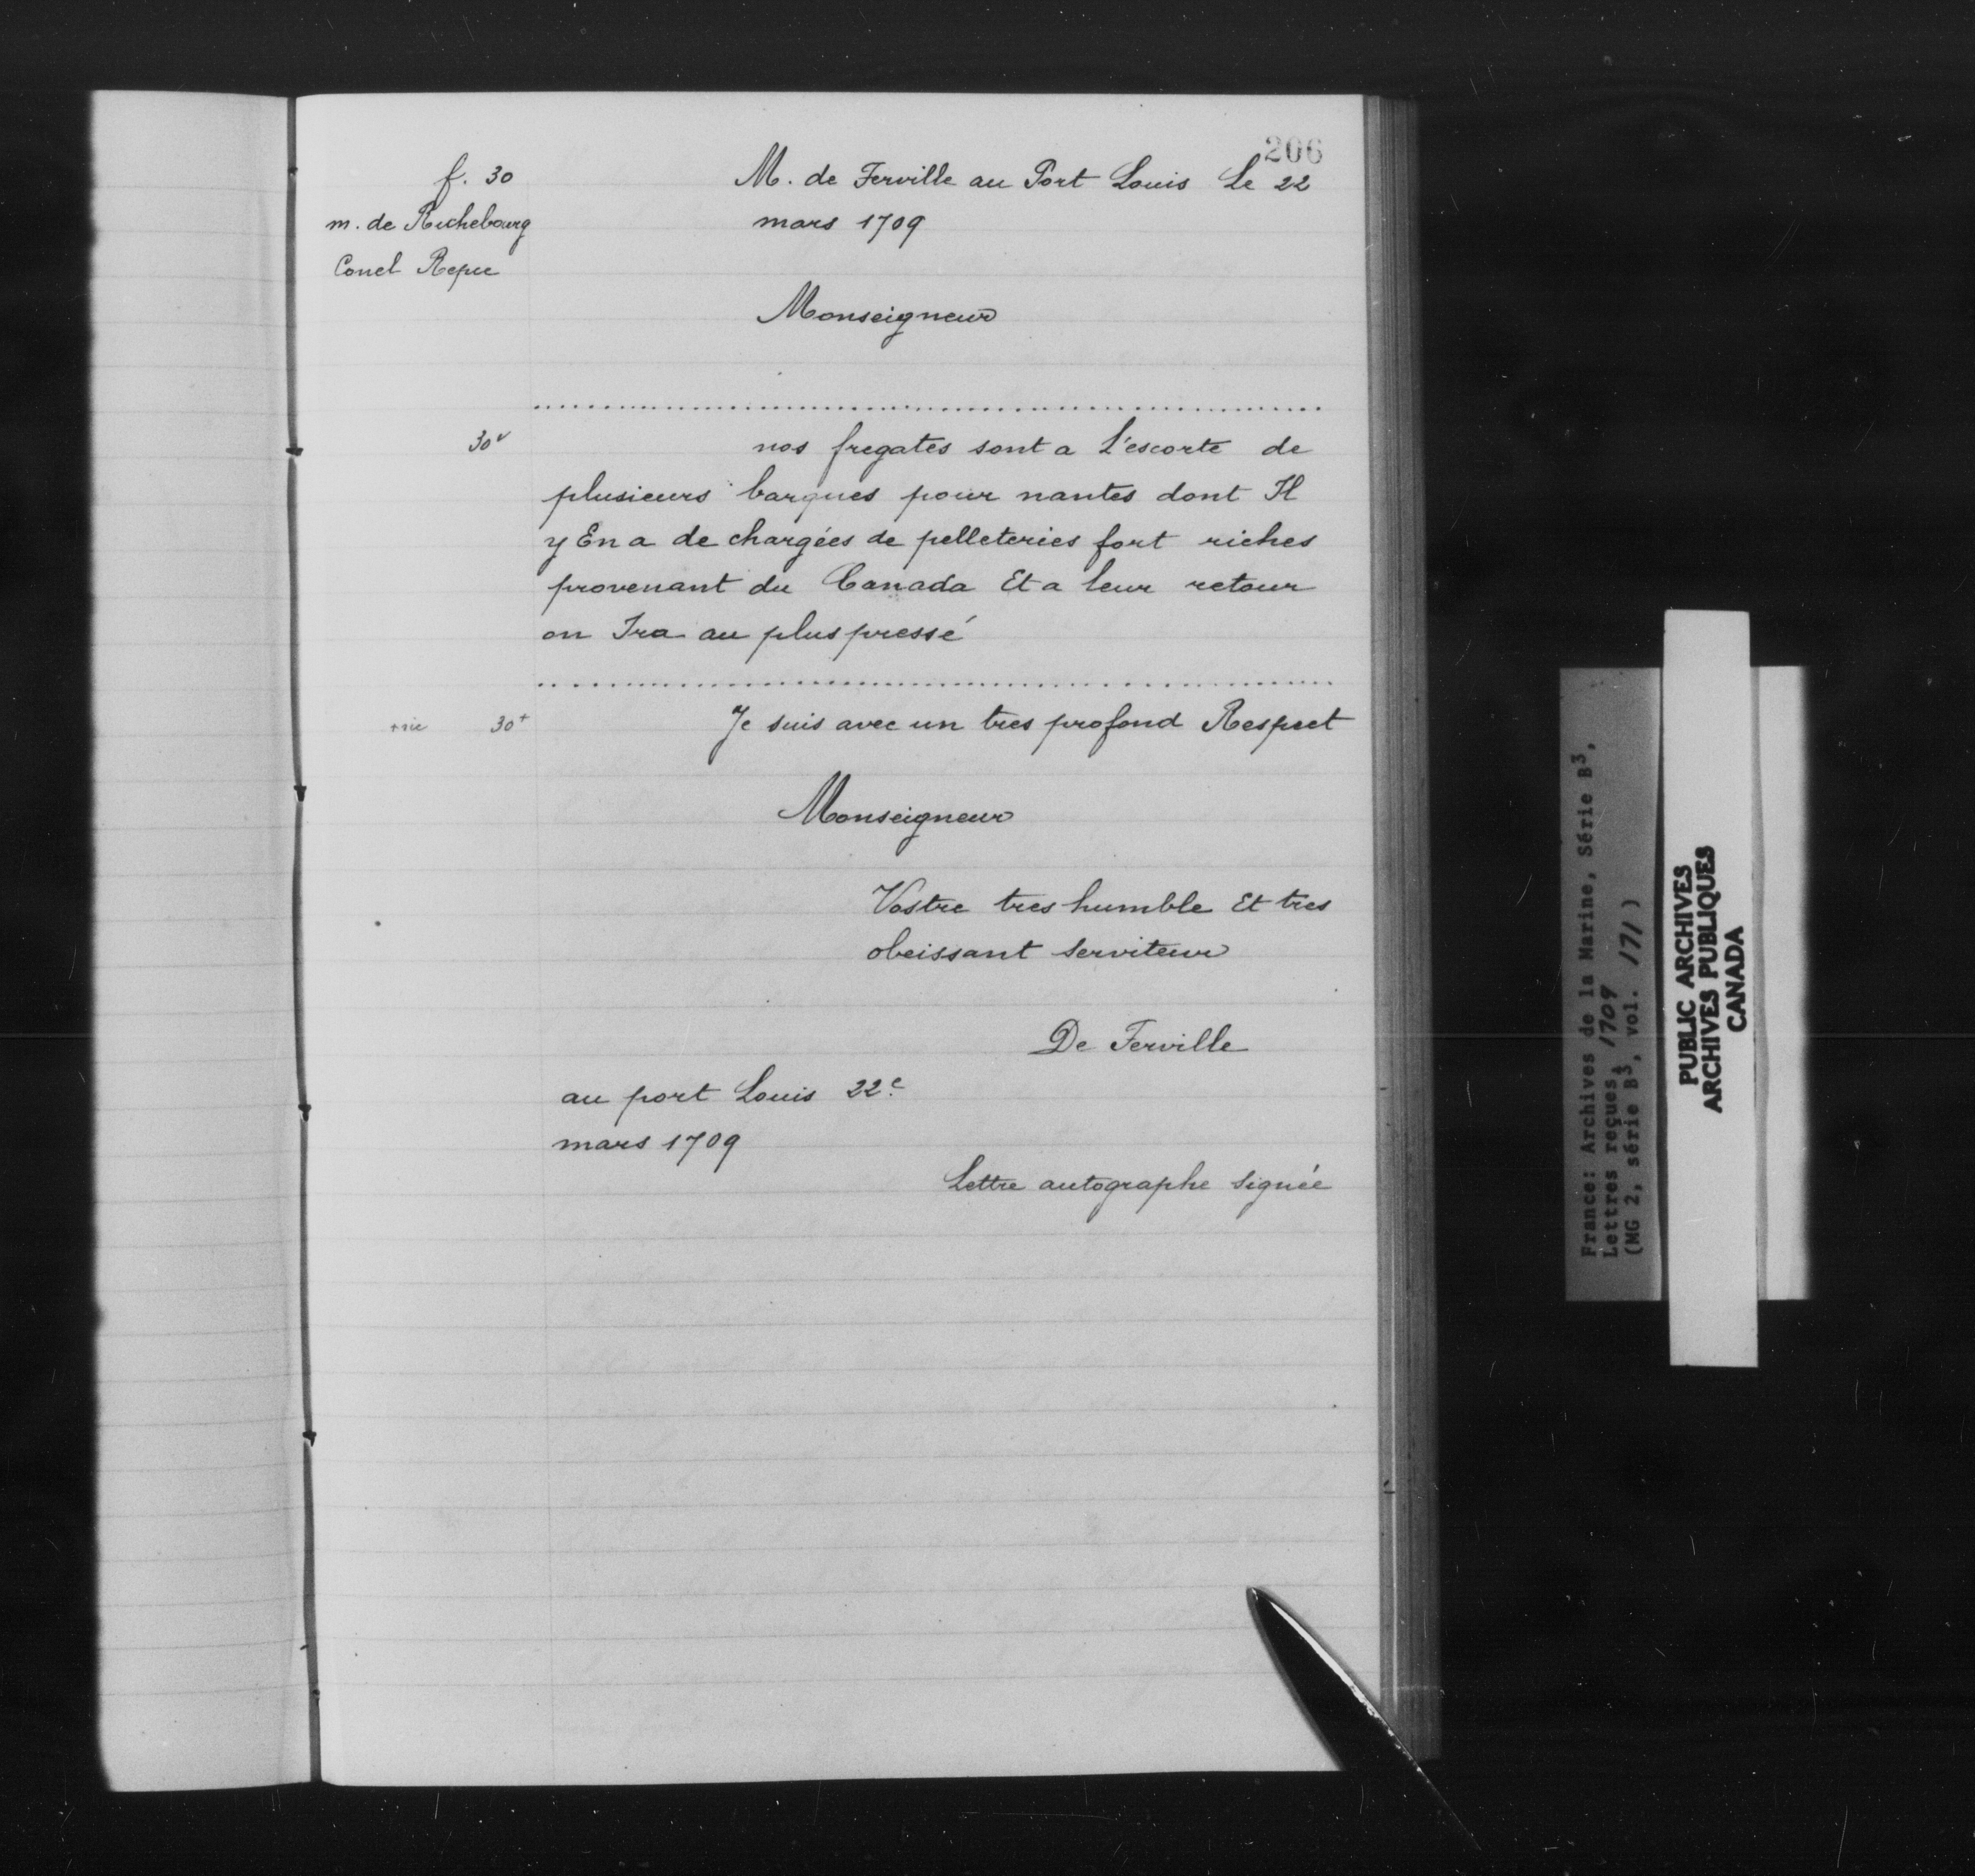 206
f. 30
m. de Richebourg
Concl Repce
M. de Ferville au Port Louis Le 22
mars 1709
Monseigneur
30v
nos fregates sont a L'escorte de
plusieurs barques pour nantes dont Il
y En a de chargées de pelleteries fort riches
provenant du Canada Et a leur retour
on Ira au plus pressé
+sic 30+
Je suis avec un tres profond Respect
Monseigneur
Vostre tres humble Et tres
obeissant Serviteur
De Ferville
au port Louis 22e
mars 1709
Lettre autographe signée
France: Archives de la Marine, Série B3,
Lettres reçues, 1709
(MG 2, série B3, vol. 171)
PUBLIC ARCHIVES
ARCHIVES PUBLIQUES
CANADA